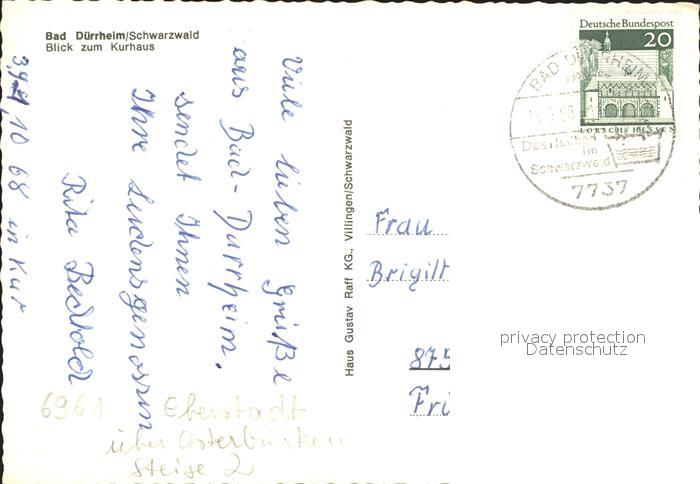 Bad Dürrheim/Schwarzwald
Blick zum Kurhaus
Viele lieben Grüße
aus Bad-Dürrheim,
sendet Ihnen
Ihre Leidensgenossin
Rita Bechtold
10 68 in Kur
6961 Eberstadt
über Osterburken
Steige 2
Haus Gustav Raff KG., Villingen/Schwarzwald
Deutsche Bundespost
20
LORSCH/HESSEN
BAD DÜRRHEIM
Das Heilbad
im
Schwarzwald
7737
Frau
Brigit
875
Fri
privacy protection
Datenschutz